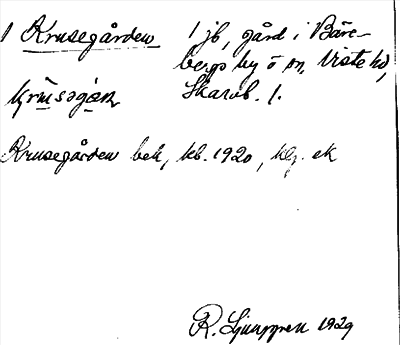 1 Krusegården 1 jb, gård i Bäre-
bergs by o sn, Viste hd,
Skarab. l.
Krusegården bek, kb. 1920, klg. ek
R. Ljunggren 1929